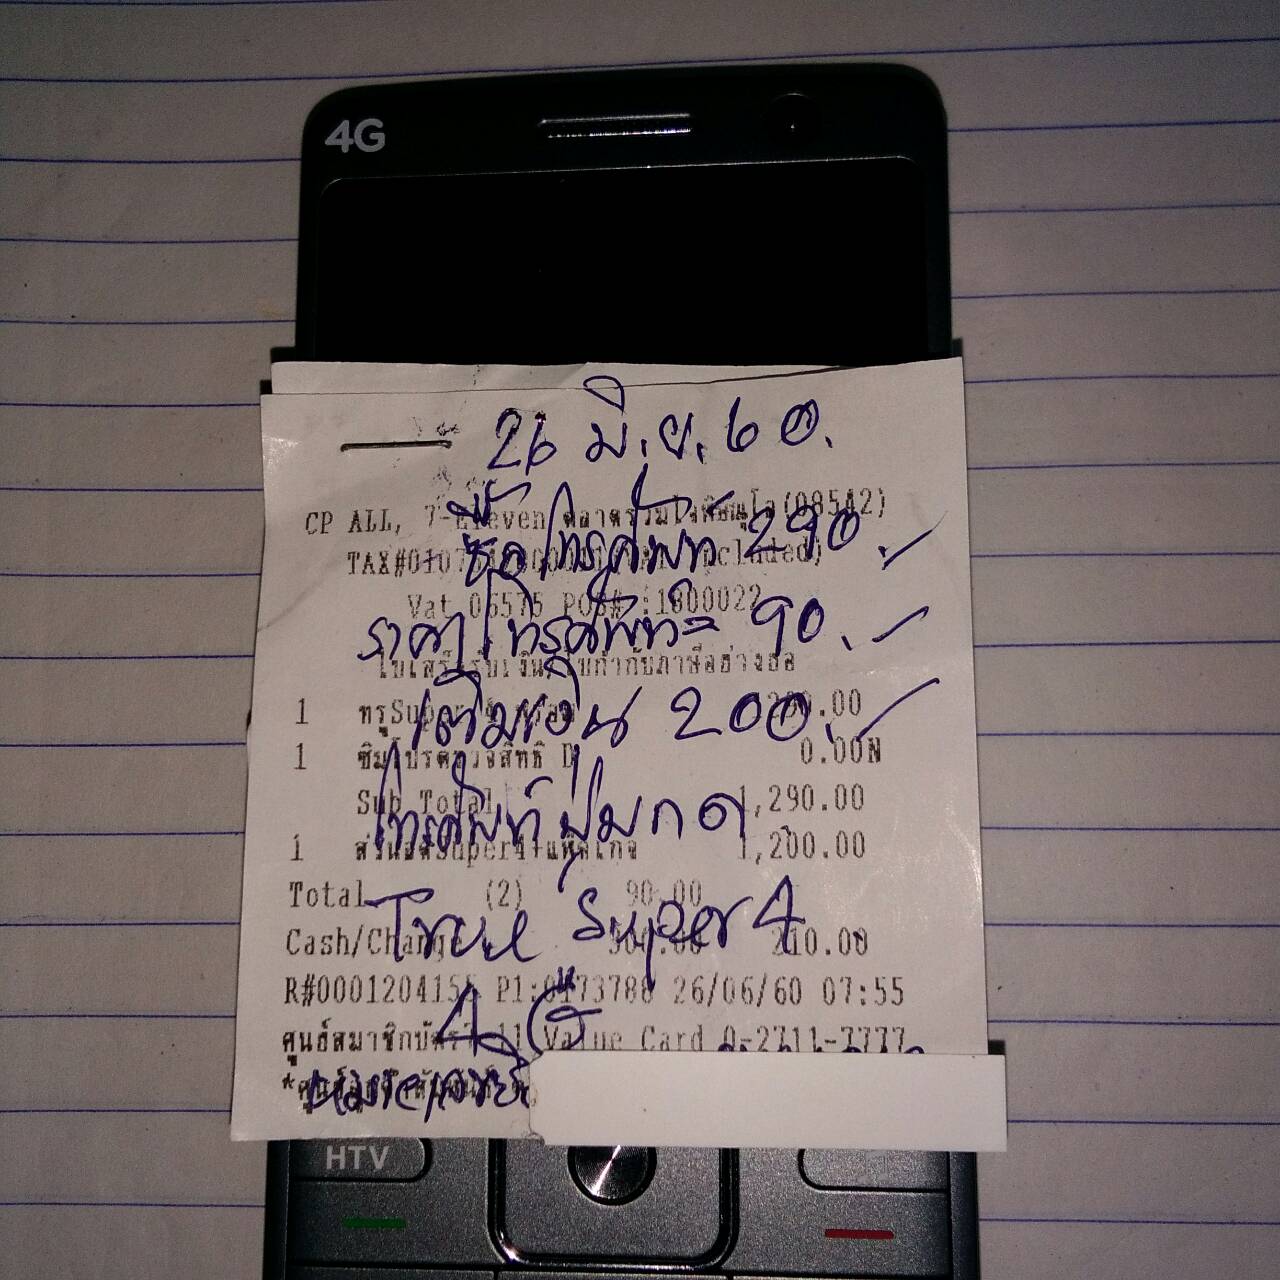 4G
26 มิ.ย. 60.
CP ALL, 7-Eleven ตลาดร่วมใจพิษณุโลก(08542)
ซื้อโทรศัพท์ 290.
Vat 06575 POS# :1800022
ราคาโทรศัพท์= 90.
ใบเสร็จรับเงิน/ใบกำกับภาษีอย่างย่อ
1 ทรูSuper 4 290.00
เติมเงิน 200.
1 ซิมโปรตรวจสิทธิ 0.00N
Sub Total 1,290.00
โทรศัพท์ปุ่มกด
1 ส่วนลดSuper4+แพ็คเกจ 1,200.00
Total (2) 90.00
True Super 4
Cash/Change 300.00 210.00
R#0001204155 P1:0173788 26/06/60 07:55
4 G
ศูนย์สมาชิกบัตร7-11 Value Card 0-2711-7777
หมายเลข
HTV